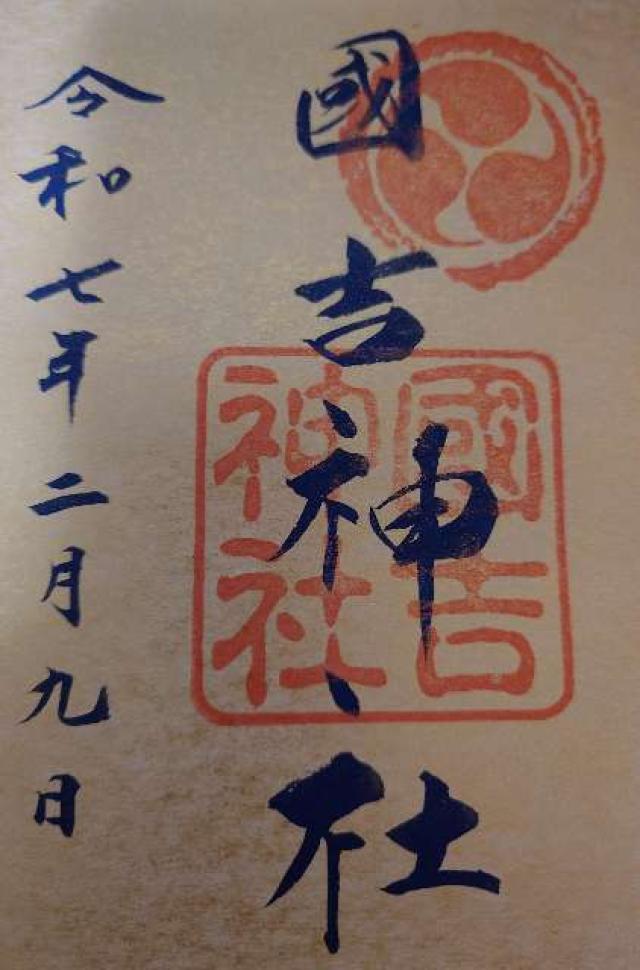 國吉神社
國吉
神社
令和七年二月九日